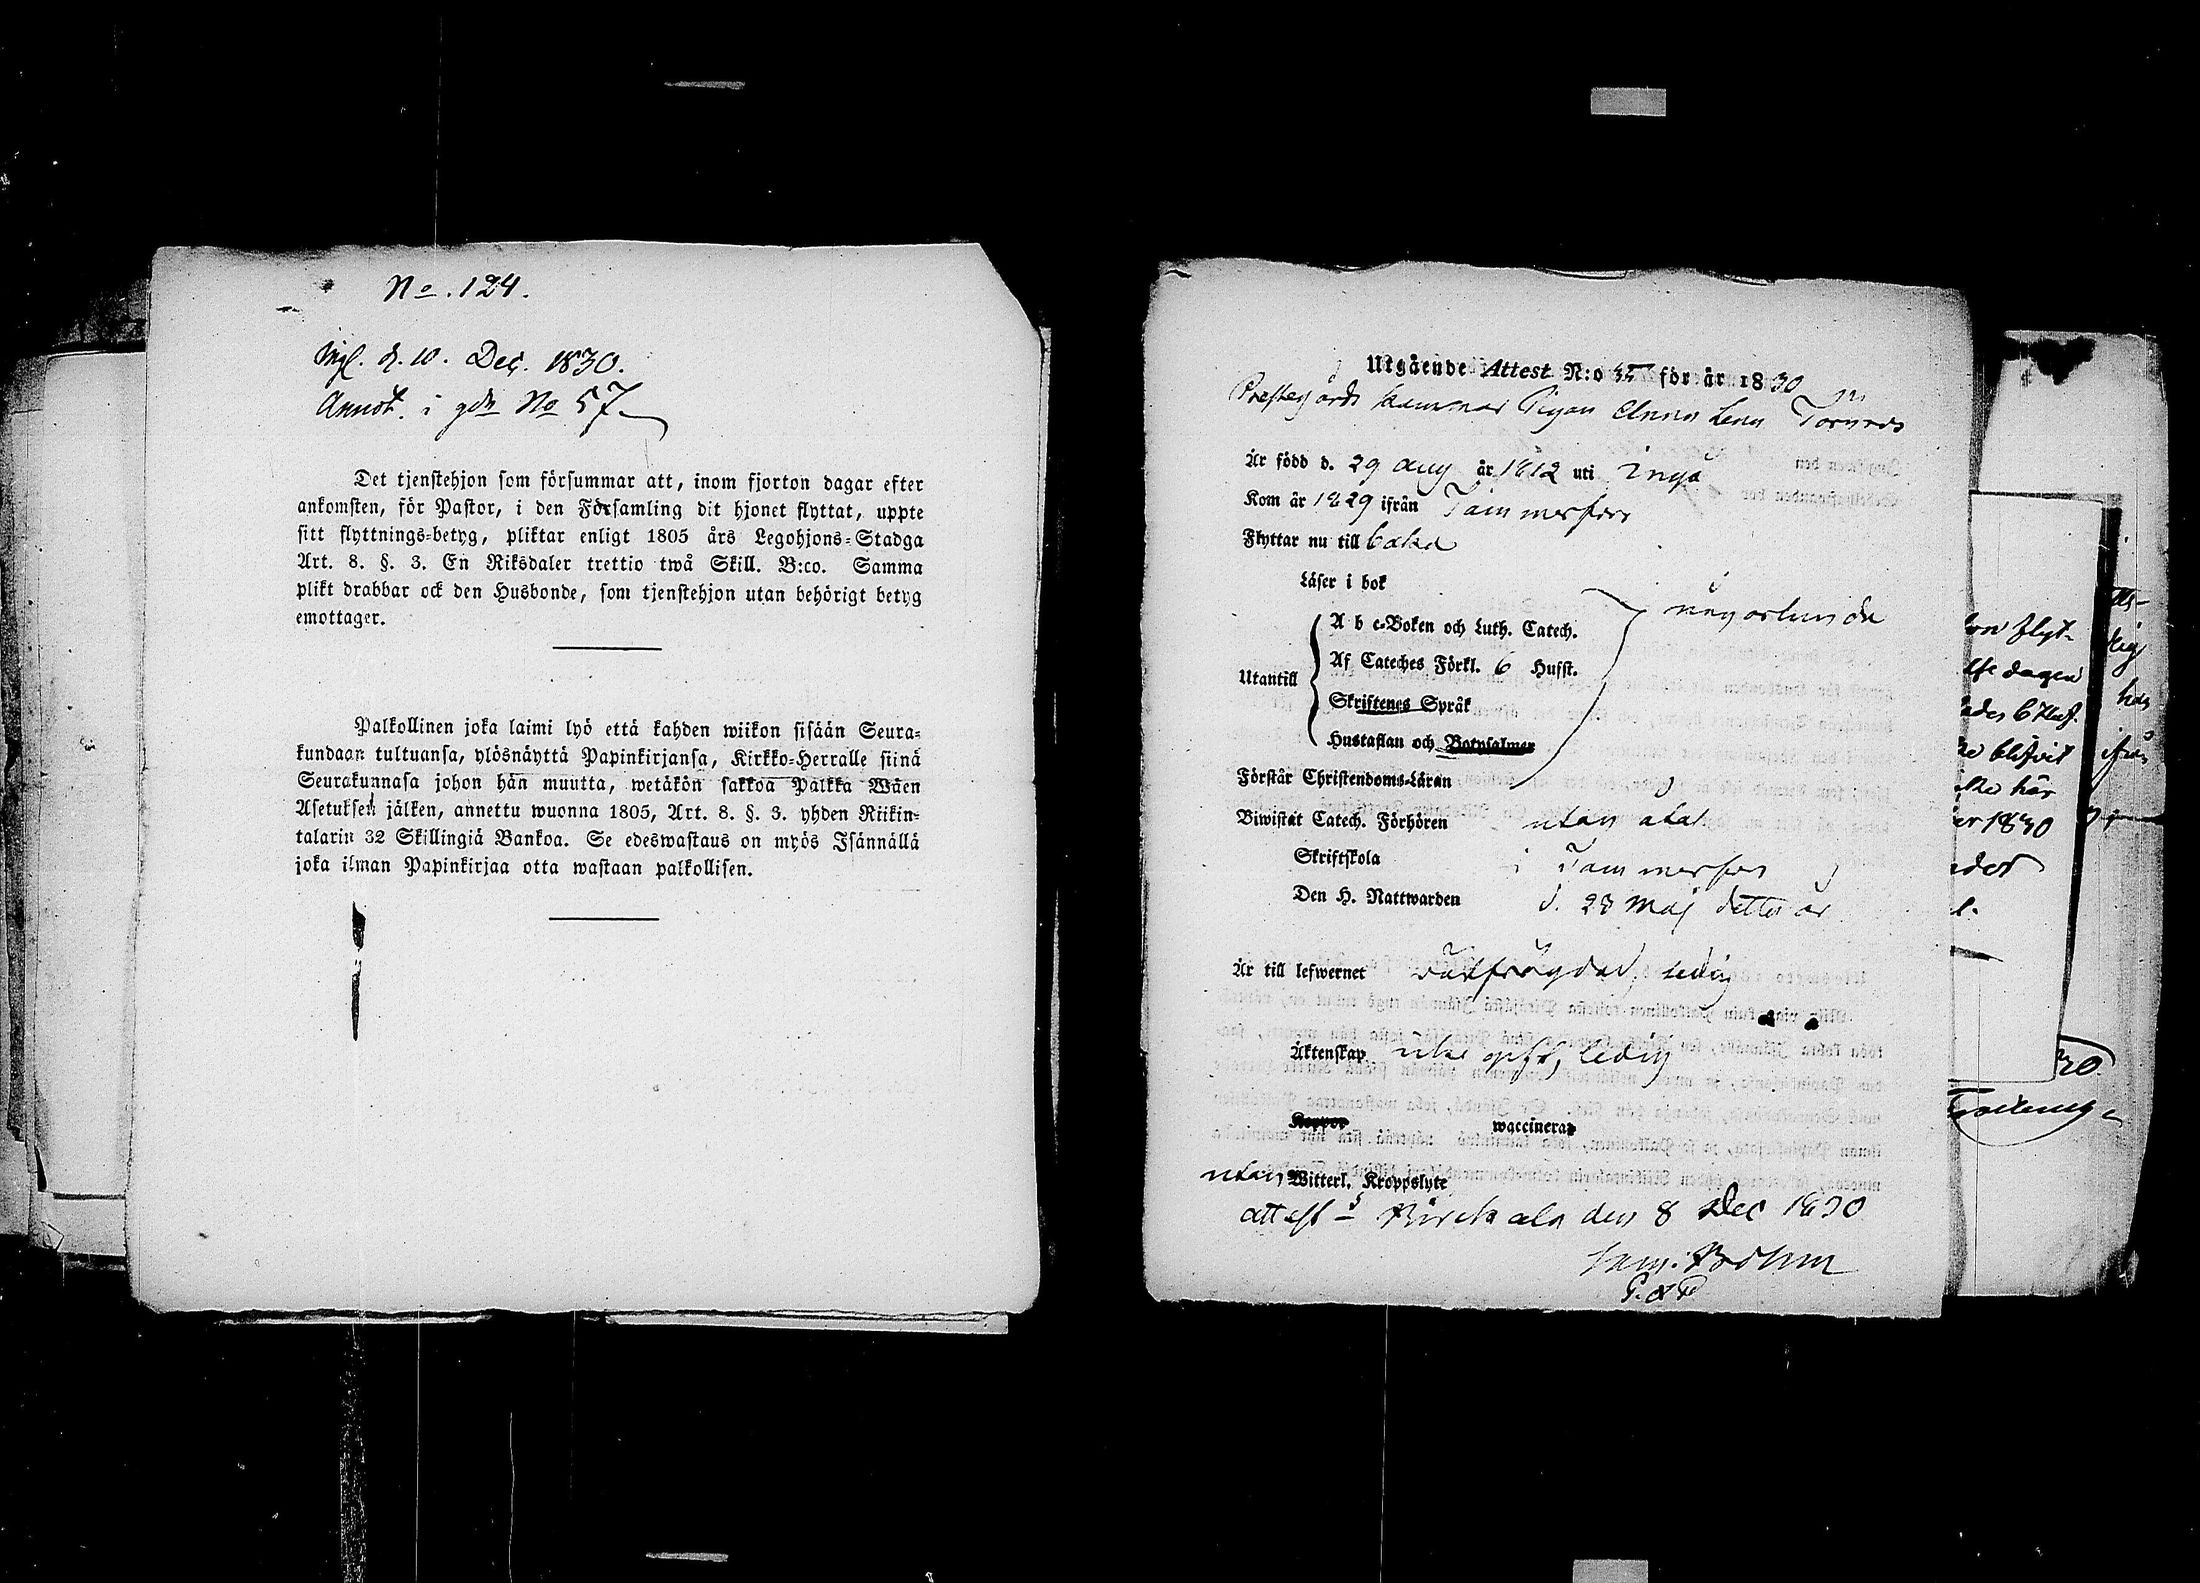 No. 124.
Ingl. d. 10. Dec. 1830.
Annot. i gdn No 57.
Det tjenstehjon som försummar att, inom fjorton dagar efter
ankomsten, för Pastor, i den Församling dit hjonet flyttat, uppte
sitt flyttnings-betyg, pliktar enligt 1805 års Legohjons-Stadga
Art. 8. §. 3. En Riksdaler trettio twå Skill. B:co. Samma
plikt drabbar ock den Husbonde, som tjenstehjon utan behörigt betyg
emottager.
Palkollinen joka laimi lyö että kahden wiikon sisään Seura-
kundaan tultuansa, ylösnäyttä Papinkirjansa, Kirkko-Herralle siinä
Seurakunnasa johon hän muutta, wetäkön sakkoa Palkka Wäen
Asetuksen jälken, annettu wuonna 1805, Art. 8. §. 3. yhden Riikin-
talarin 32 Skillingiä Bankoa. Se edeswastaus on myös Isännällä
joka ilman Papinkirjaa otta wastaan palkollisen.
Utgående Attest N:o för år 1830
Prestegårds kammar Pigan Anna Lena Törnros
Är född d. 29 aug år 1812 uti Ingå
Kom år 1829 ifrån Tammerfors
Flyttar nu till
Läser i bok
A b c-Boken och Luth. Catech.
Af Cateches Förkl. 6 Hufst.
Utantill
Skriftenes Språk
Hustaflan och Botpsalmer
någorlunda
Förstår Christendoms-Läran
Biwistat Catech. Förhören utan atal
Skriftskola i Tammerfors
Den H. Nattwarden d. 23 Maj detta år
Är till lefwernet wälfrägdad, ledig
Äktenskap icke gift, ledig
Koppor waccinerad
utan Witterl. Kroppslyte
attest s Birckala den 8 Dec 1830
Sam. Bohm
flyt-
dagen
6 Huf.
blifvit
här
1830
30